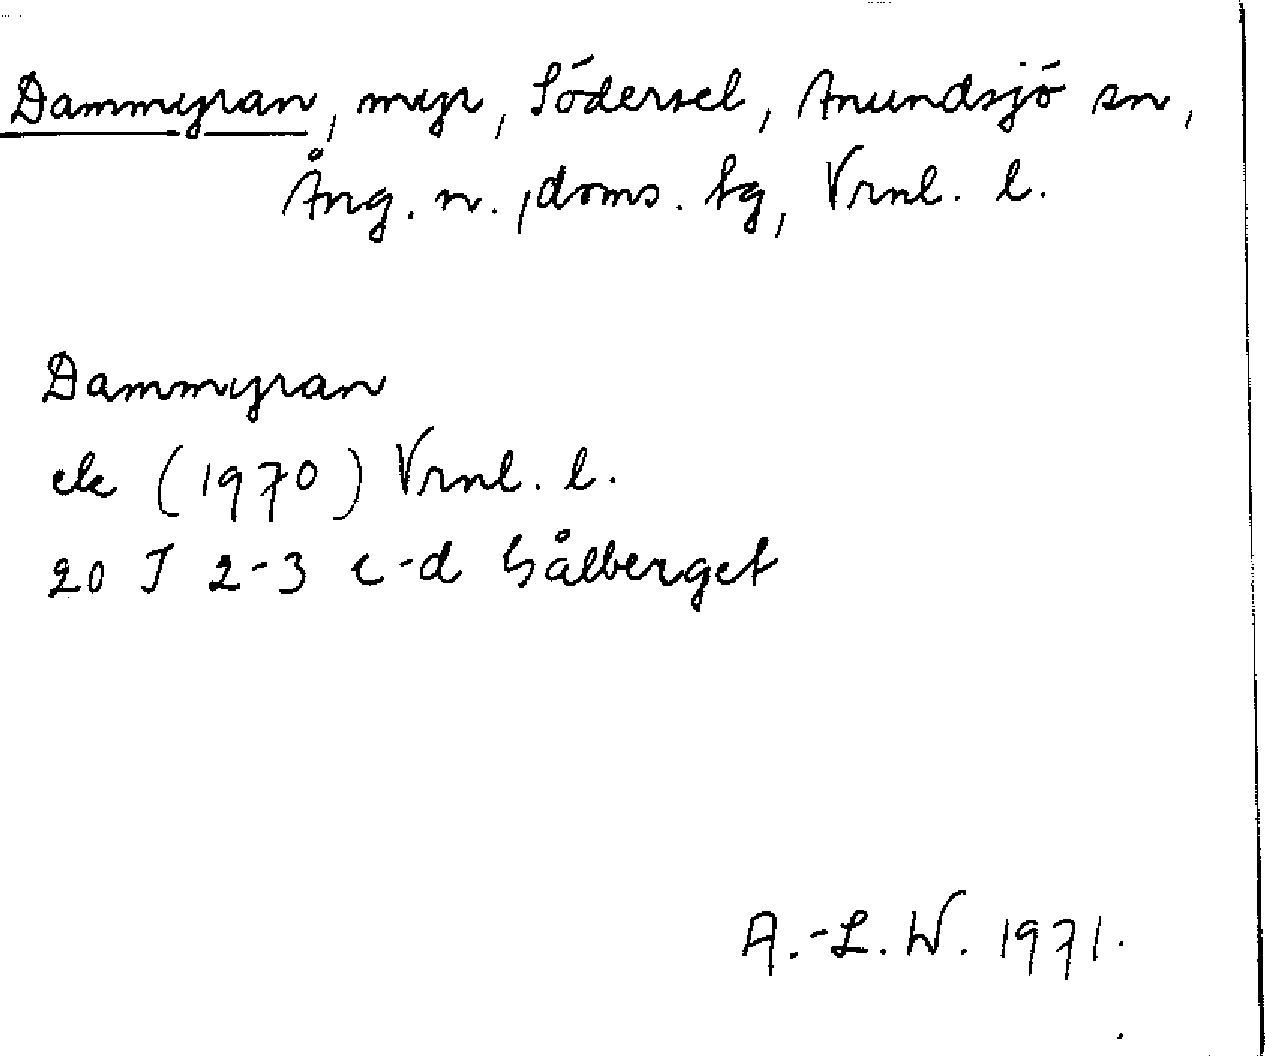 Dammyran, myr, Södersel, Anundsjö sn,
Ång. n., doms. tg, Vrnl. l.
Dammyran
ek (1970) Vrnl. l.
20 J 2-3 c-d Sålberget
A.-L. W. 1971.